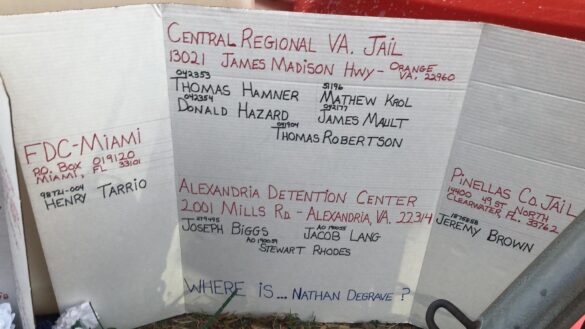 FDC-MIAMI
P.O. BOX 019120
MIAMI, FL 33101
98721-004
HENRY TARRIO
CENTRAL REGIONAL VA. JAIL
13021 JAMES MADISON HWY - ORANGE VA. 22960
042353
THOMAS HAMNER
51196
MATHEW KROL
042354
DONALD HAZARD
JAMES MAULT
THOMAS ROBERTSON
ALEXANDRIA DETENTION CENTER
2001 MILLS RD. - ALEXANDRIA, VA. 22314
JOSEPH BIGGS
JACOB LANG
STEWART RHODES
WHERE IS... NATHAN DEGRAVE?
PINELLAS CO. JAIL
14400 49 ST. NORTH
CLEARWATER, FL. 33762
JEREMY BROWN